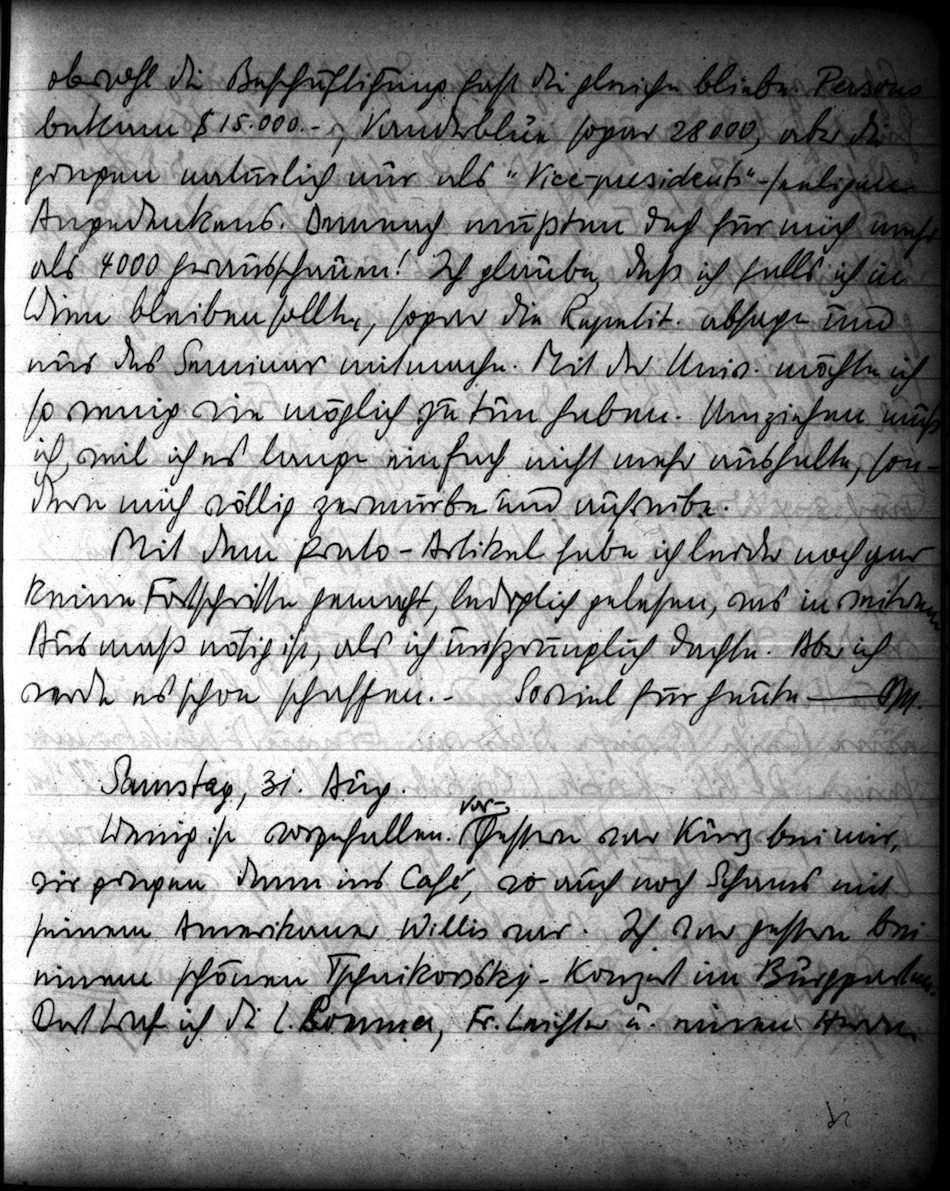 obwohl die Beschäftigung fast die gleiche bliebe. Persons
bekam $ 15.000.-, Vanderblue sogar 28000, aber die
gingen natürlich nur als "Vice-presidents"- seligen
Angedenkens. Demnach müßten doch für mich mehr
als 4000 herausschauen! Ich glaube, daß ich falls ich in
Wien bleiben sollte, sogar die Kapalit. absage und
nur das Seminar mitmache. Mit der Univ. möchte ich
so wenig wie möglich zu tun haben. Umziehen muß
ich, weil ich es lange einfach nicht mehr aushalte, son-
dern mich völlig zermürbe und aufreibe.
Mit dem Artikel habe ich leider noch gar
keine Fortschritte gemacht, lediglich gelesen, was in weiterem
Ausmaß nötig ist, als ich ursprünglich dachte. Aber ich
werde es schon schaffen.- Soviel für heute — OM.
Samstag, 31. Aug.
Wenig ist vorgefallen. Vorgestern war Kunz bei mir,
wir gingen dann ins Café, wo auch noch Schams mit
seinem Amerikaner Willis war. Ich war gestern bei
einem schönen Tschaikovskij-Konzert im Burggarten.
Dort traf ich die l. Bonma, Fr. Leichter u. einen Herrn